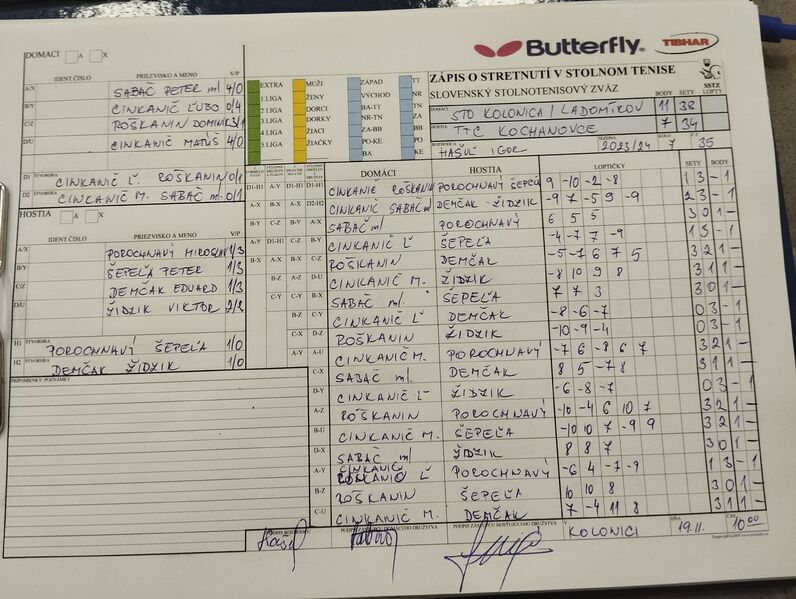 Butterfly
TIBHAR
DOMÁCI A X
IDENT ČÍSLO PRIEZVISKO A MENO V/P
A/X SABAČ PETER ml 4/0
B/Y CINKANIČ ĽUBO 0/4
C/Z ROŠKANIN DOMINIK 3/1
D/U CINKANIČ MATÚŠ 4/0
D1 ŠTVORHRA CINKANIČ Ľ. ROŠKANIN 0/1
D2 ŠTVORHRA CINKANIČ M. SABAČ ml 0/1
HOSTIA A X
IDENT ČÍSLO PRIEZVISKO A MENO V/P
A/X POROCHNAVÝ MIROSLAV 1/3
B/Y ŠEPEĽA PETER 1/3
C/Z DEMČAK EDUARD 1/3
D/U ŽIDZIK VIKTOR 2/2
H1 ŠTVORHRA POROCHNAVÝ ŠEPEĽA 1/0
H2 ŠTVORHRA DEMČAK ŽIDZIK 1/0
PRIPOMIENKY, POZNÁMKY
EXTRA MUŽI ZÁPAD TT
1.LIGA ŽENY VÝCHOD NR
2.LIGA DORCI BA-TT TN
3.LIGA DORKY NR-TN ZA
4.LIGA ŽIACI ZA-BB BB
5.LIGA ŽIAČKY PO-KE PO
BA KE
ZÁPIS O STRETNUTÍ V STOLNOM TENISE
SLOVENSKÝ STOLNOTENISOVÝ ZVÄZ
SSTZ
BODY SETY LOPTY
DOMÁCI STO KOLONICA / LADOMIROV 11 38
HOSTIA TTC KOCHANOVCE 7 34
ROZHODCA HAŠUĽ IGOR SEZÓNA 2023/24 KOLO 7 35
DOMÁCI HOSTIA LOPTIČKY SETY BODY
D1-H1 CINKANIČ ROŠKANIN POROCHNAVÝ ŠEPEĽA 9 -10 -2 -8 1 3 - 1
D2-H2 CINKANIČ SABAČ ml DEMČAK - ŽIDZIK -9 7 -5 9 -9 2 3 - 1
A-X SABAČ ml POROCHNAVÝ 6 5 5 3 0 1 -
B-Y CINKANIČ Ľ ŠEPEĽA -4 -7 7 -9 1 3 - 1
C-Z ROŠKANIN DEMČAK -5 -7 6 7 5 3 2 1 -
D-U CINKANIČ M. ŽIDZIK -8 10 9 8 3 1 1 -
A-Y SABAČ ml. ŠEPEĽA 7 7 3 3 0 1 -
B-Z CINKANIČ Ľ DEMČAK -8 -6 -7 0 3 - 1
C-U ROŠKANIN ŽIDZIK -10 -9 -4 0 3 - 1
CINKANIČ M. POROCHNAVÝ -7 6 -8 6 7 3 2 1 -
SABAČ ml. DEMČAK 8 5 -7 8 3 1 1 -
D-Y CINKANIČ Ľ ŽIDZIK -6 -8 -7 0 3 - 1
A-Z ROŠKANIN POROCHNAVÝ -10 -4 6 10 7 3 2 1 -
B-U CINKANIČ M. ŠEPEĽA -10 10 7 -9 9 3 2 1 -
D-X SABAČ ml ŽIDZIK 8 8 7 3 0 1 -
A-Y CINKANIČ Ľ POROCHNAVÝ -6 4 -7 -9 1 3 - 1
B-Z ROŠKANIN ŠEPEĽA 10 10 8 3 0 1 -
C-U CINKANIČ M. DEMČAK 7 -4 11 8 3 1 1 -
PODPIS ROZHODCU PODPIS ZÁSTUPCU DOMÁCEHO DRUŽSTVA PODPIS ZÁSTUPCU HOSŤUJÚCEHO DRUŽSTVA V KOLONICI DŇA 19.11. ČAS 10:00